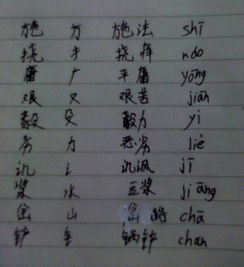 施 方 施法 shī
挠 扌 挠痒 náo
庸 广 平庸 yōng
艰 又 艰苦 jiān
毅 殳 毅力 yì
劣 力 恶劣 liè
讥 讠 讥讽 jī
浆 水 豆浆 jiāng
岔 山 岔路 chā
铲 钅 锅铲 chan